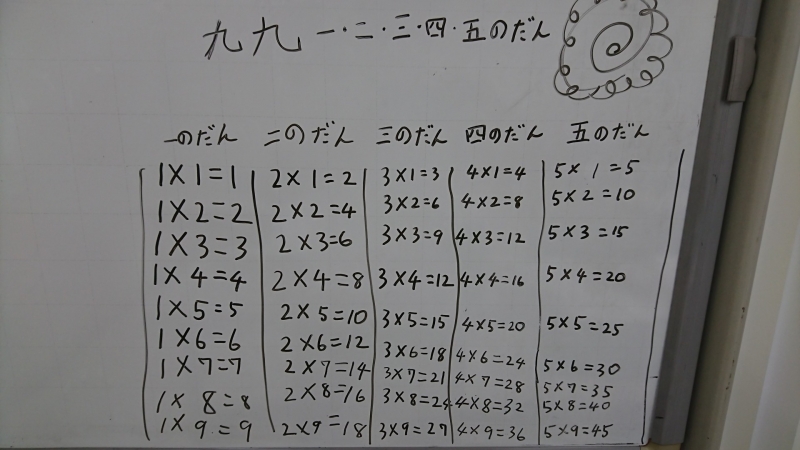 九九 一・二・三・四・五のだん
一のだん 二のだん 三のだん 四のだん 五のだん
1×1=1 2×1=2 3×1=3 4×1=4 5×1=5
1×2=2 2×2=4 3×2=6 4×2=8 5×2=10
1×3=3 2×3=6 3×3=9 4×3=12 5×3=15
1×4=4 2×4=8 3×4=12 4×4=16 5×4=20
1×5=5 2×5=10 3×5=15 4×5=20 5×5=25
1×6=6 2×6=12 3×6=18 4×6=24 5×6=30
1×7=7 2×7=14 3×7=21 4×7=28 5×7=35
1×8=8 2×8=16 3×8=24 4×8=32 5×8=40
1×9=9 2×9=18 3×9=27 4×9=36 5×9=45